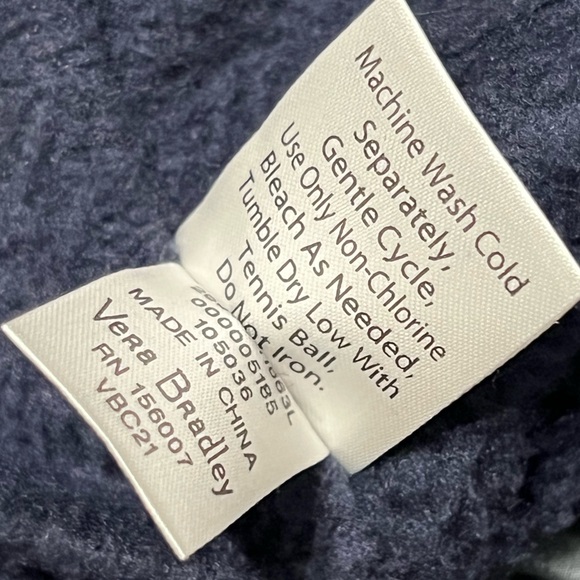 Machine Wash Cold
Separately,
Gentle Cycle,
Use Only Non-Chlorine
Bleach As Needed,
Tumble Dry Low With
Tennis Ball,
Do Not Iron.
0000005185
105036
MADE IN CHINA
Vera Bradley
RN 156007
VBC21